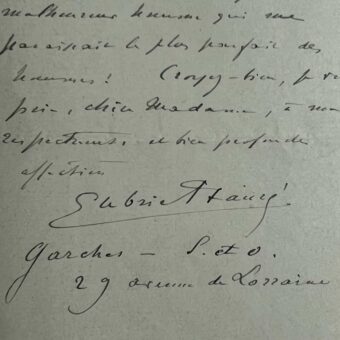 malheureux homme qui me
paraissait le plus parfait des
hommes! Croyez-bien, je vous
prie, chère Madame, à mon
respectueuse et bien profonde
affection
Gabriel Fauré
Garches — S. et O.
29 avenue de Lorraine